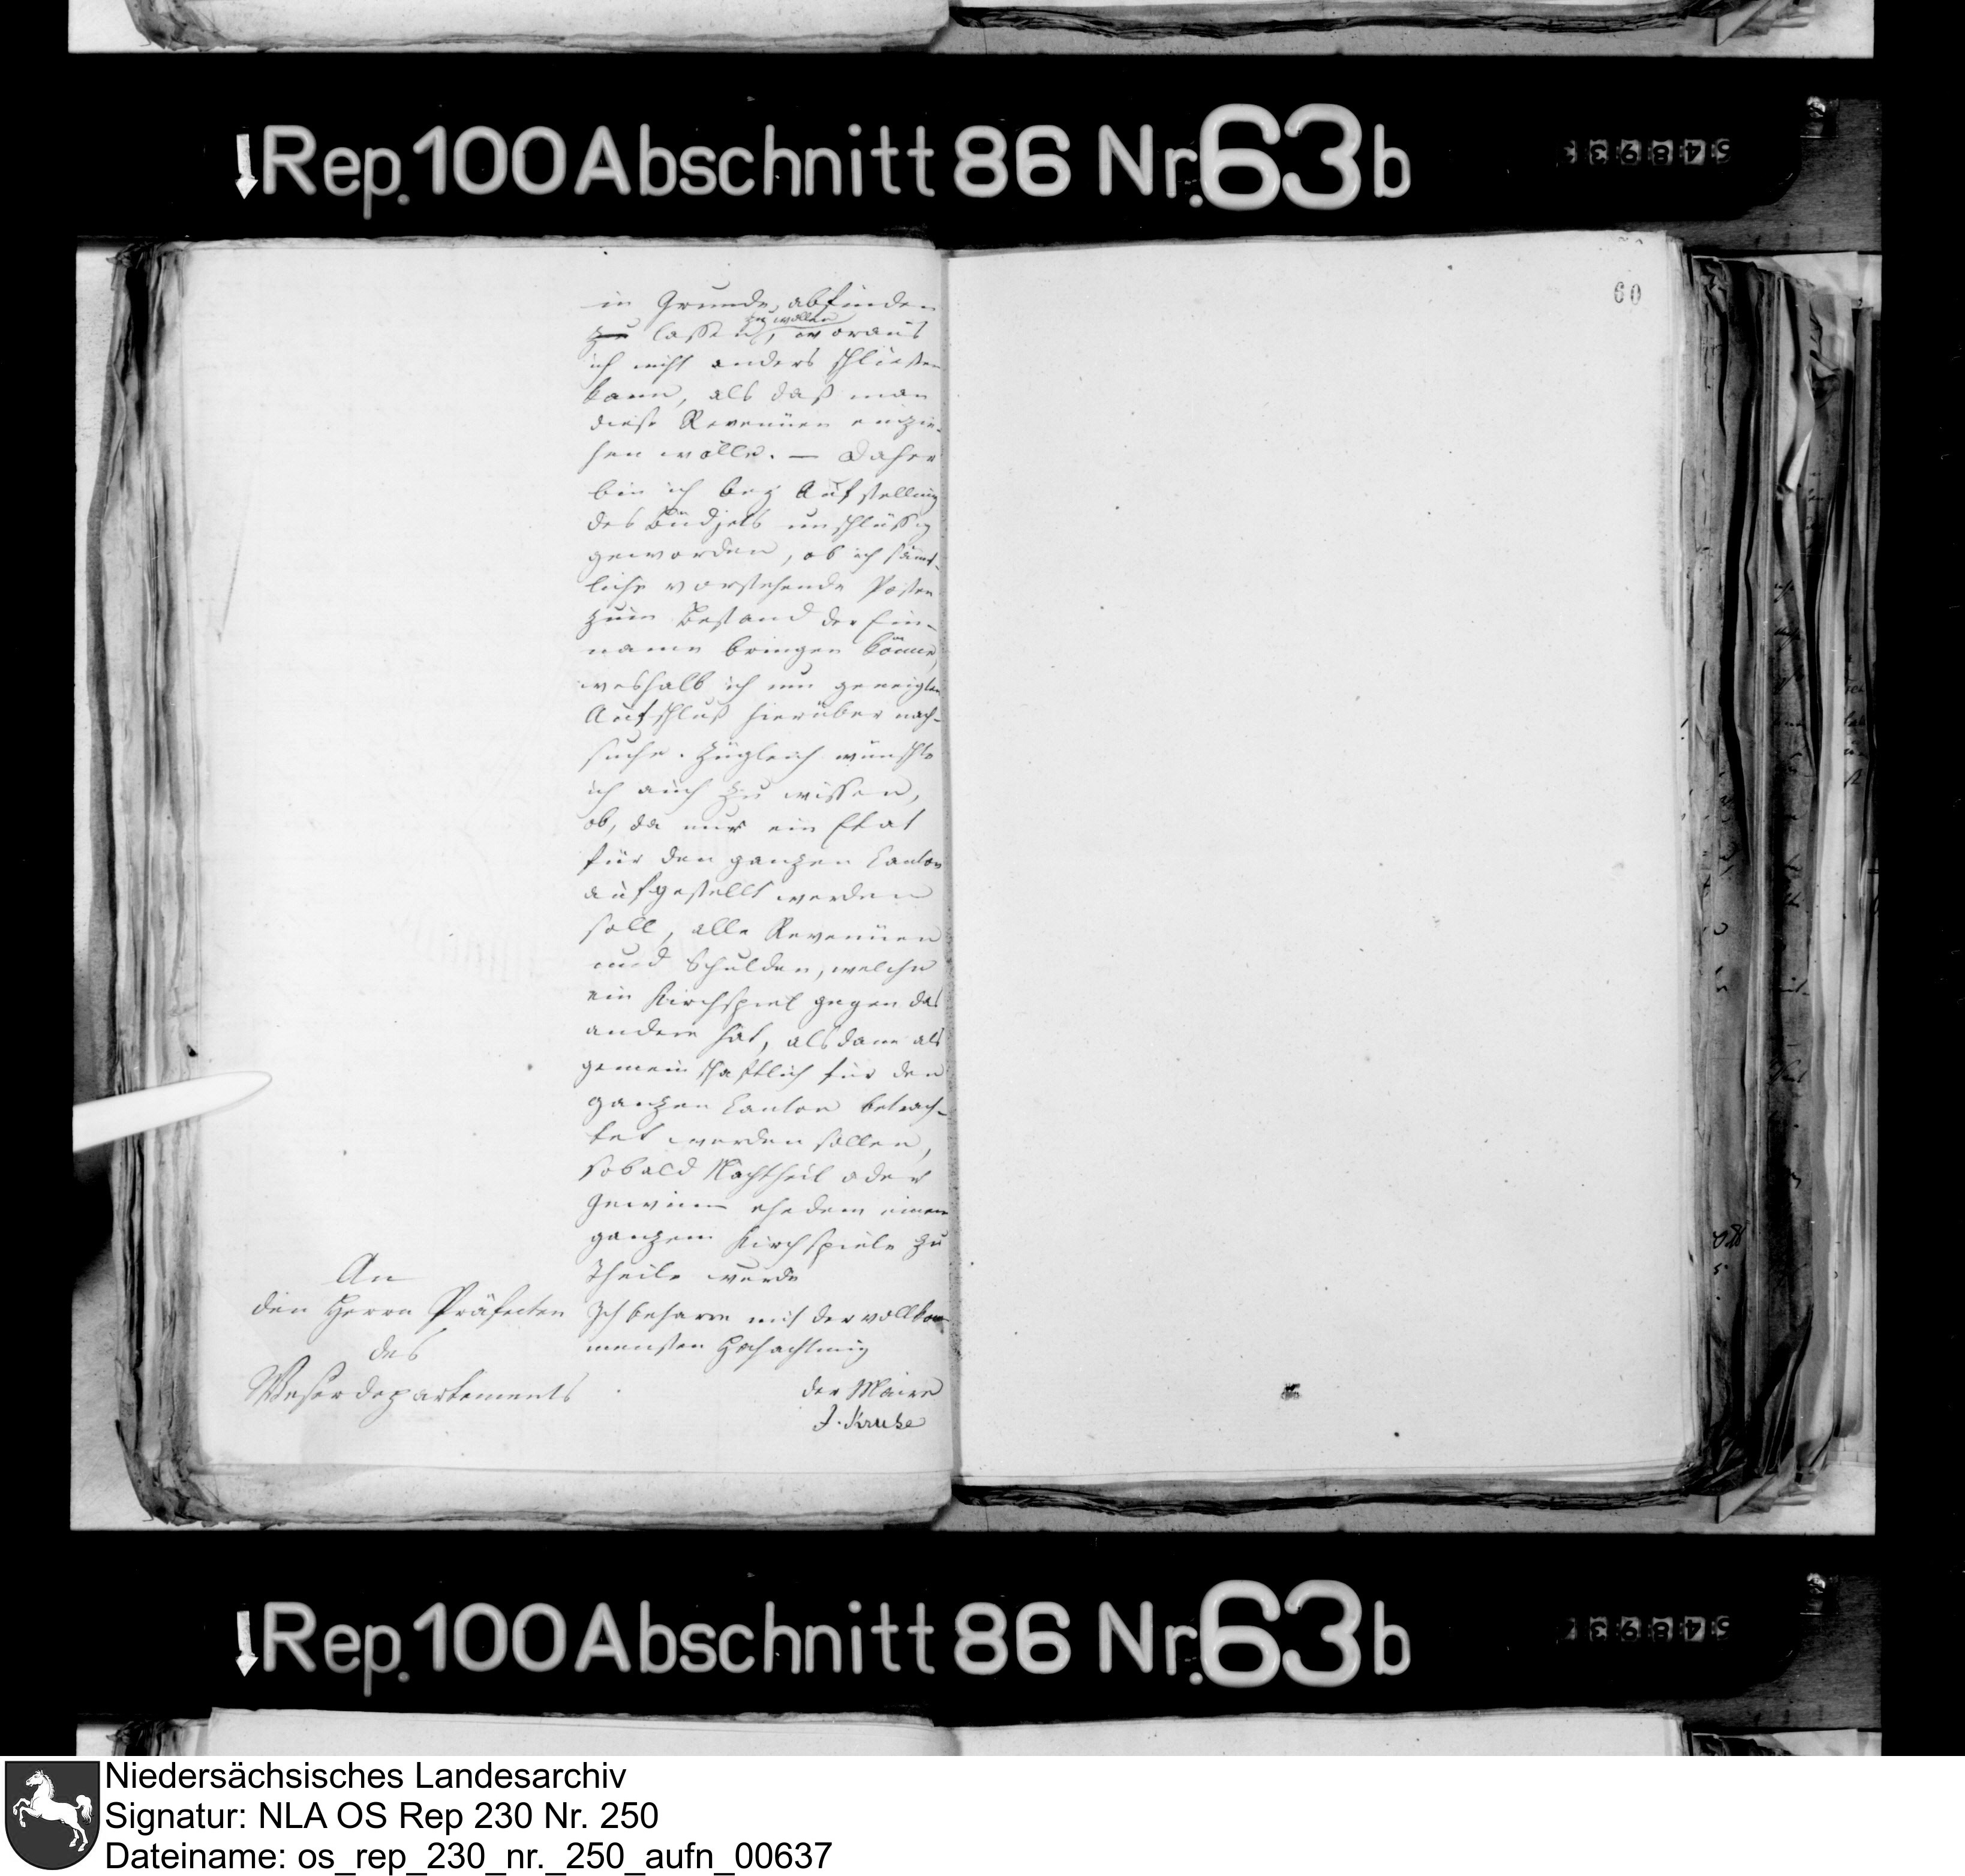 Rep. 100 Abschnitt 86 Nr. 63b
60
in Grunde abfinden
zu lassen zu wollen, woraus
ich nicht anders schließen
kann, als daß man
diese Revenüen einzie-
hen wolle. — Daher
bin ich bey Aufstellung
des Büdjets unschlüssig
geworden, ob ich sämt-
liche vorstehende Posten
zum Bestand der Ein-
name bringen könne,
weshalb ich um geneigten
Aufschluß hierüber nach-
suche. Zugleich wünschte
ich auch zu wissen,
ob, da nur ein Etat
für den ganzen Canton
aufgestellt werden
soll, alle Revenüen
und Schulden, welche
ein Kirchspiel gegen das
andere hat, alsdann als
gemeinschaftlich für den
ganzen Canton betrach-
tet werden sollen,
sobald Nachtheil oder
Gewinn ehedem einem
ganzem Kirchspiele zu
Theile wurde
Ich beharre mit der vollkom-
mensten Hochachtung
der Maire
J. Kruse
An
den Herrn Präfecten
des
Weserdepartements
Rep. 100 Abschnitt 86 Nr. 63b
Niedersächsisches Landesarchiv
Signatur: NLA OS Rep 230 Nr. 250
Dateiname: os_rep_230_nr._250_aufn_00637